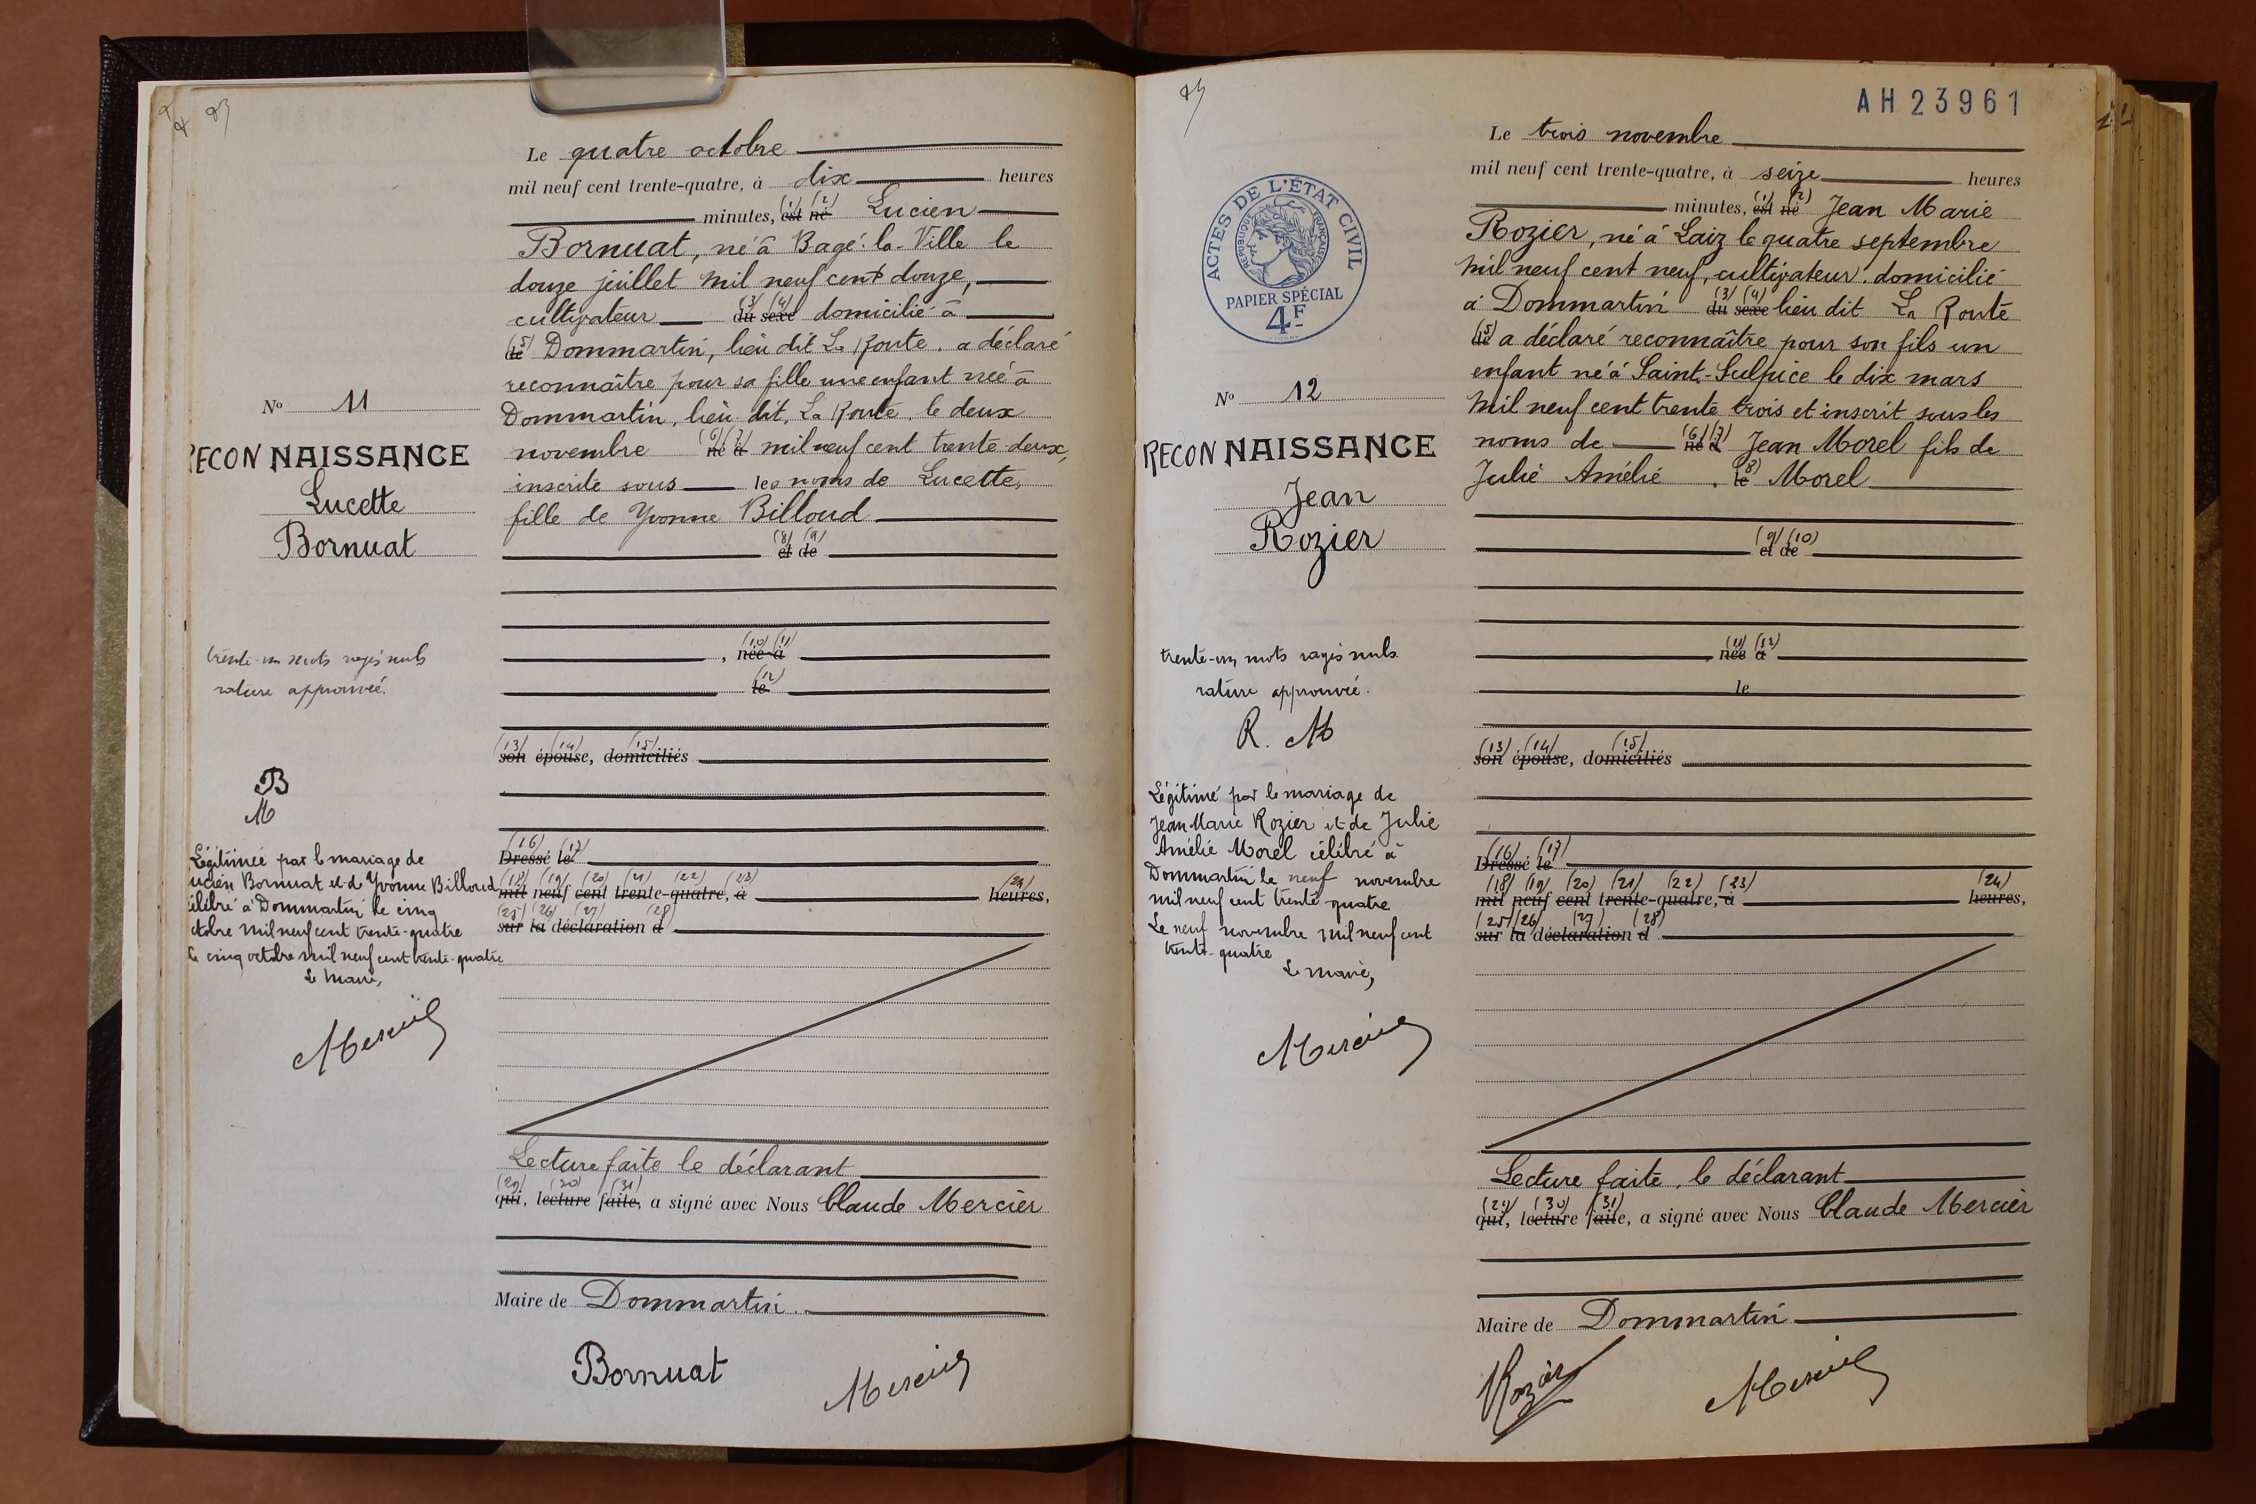 83
Le quatre octobre
mil neuf cent trente-quatre, à dix heures
minutes, (1) est (2) né Lucien
Bornuat, né à Bagé-la-Ville le
douze juillet mil neuf cent douze,
cultivateur (3) du (4) sexe domicilié à
(5) le Dommartin, lieu dit La Route. a déclaré
reconnaître pour sa fille une enfant née à
Dommartin, lieu dit, La Route, le deux
novembre (6) né (7) à mil neuf cent trente-deux,
inscrite sous les noms de Lucette,
fille de Yvonne Billoud
(8) et (9) de
, (10) née (11) à
(12) le
(13) son (14) épouse, (15) domiciliés
(16) Dressé (17) le
(18) mil (19) neuf (20) cent (21) trente-(22) quatre, (23) à (24) heures,
(25) sur (26) la (27) déclaration (28) d
Lecture faite le déclarant
(29) qui, (30) lecture (31) faite, a signé avec Nous Claude Mercier
Maire de Dommartin.
Bornuat Mercier
N° 11
RECONNAISSANCE
Lucette
Bornuat
trente-un mots rayés nuls
rature approuvée.
B
M
Légitimée par le mariage de
Lucien Bornuat et de Yvonne Billoud
célébré à Dommartin le cinq
octobre mil neuf cent trente-quatre
Le cinq octobre mil neuf cent trente-quatre
Le Maire,
Mercier
AH 23961
Le trois novembre
mil neuf cent trente-quatre, à seize heures
minutes, (1) est (2) né Jean Marie
Rozier, né à Laiz le quatre septembre
mil neuf cent neuf, cultivateur domicilié
à Dommartin (3) du (4) sexe lieu dit La Route
(5) le a déclaré reconnaître pour son fils un
enfant né à Saint-Sulpice le dix mars
mil neuf cent trente trois et inscrit sous les
noms de (6) né (7) à Jean Morel fils de
Julie Amélie , (8) le Morel
(9) et (10) de
, (11) née (12) à
le
(13) son (14) épouse, (15) domiciliés
(16) Dressé (17) le
(18) mil (19) neuf (20) cent (21) trente-(22) quatre, (23) à (24) heures,
(25) sur (26) la (27) déclaration (28) d
Lecture faite, le déclarant
(29) qui, (30) lecture (31) faite, a signé avec Nous Claude Mercier
Maire de Dommartin
Rozier Mercier
ACTES DE L'ÉTAT CIVIL
RÉPUBLIQUE FRANÇAISE
PAPIER SPÉCIAL
4F
N° 12
RECONNAISSANCE
Jean
Rozier
trente-un mots rayés nuls.
rature approuvée.
R. M
Légitimé par le mariage de
Jean Marie Rozier et de Julie
Amélie Morel célébré à
Dommartin le neuf novembre
mil neuf cent trente-quatre
Le neuf novembre mil neuf cent
trente-quatre
Le Maire,
Mercier